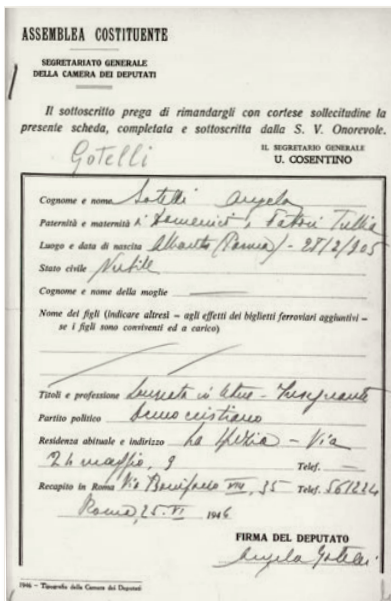 ASSEMBLEA COSTITUENTE
SEGRETARIATO GENERALE
DELLA CAMERA DEI DEPUTATI
Il sottoscritto prega di rimandargli con cortese sollecitudine la
presente scheda, completata e sottoscritta dalla S. V. Onorevole.
IL SEGRETARIO GENERALE
U. COSENTINO
Gotelli
Cognome e nome Gotelli Angela
Paternità e maternità di Domenico, Tullia
Luogo e data di nascita Albareto (Parma) - 28/2/905
Stato civile Nubile
Cognome e nome della moglie —
Nome dei figli (indicare altresì - agli effetti dei biglietti ferroviari aggiuntivi -
se i figli sono conviventi ed a carico)
Titoli e professione Laureata in lettere - Insegnante
Partito politico Democristiano
Residenza abituale e indirizzo La Spezia - Via
24 maggio, 9 Telef. —
Recapito in Roma Via Bonifacio VIII, 35 Telef. 561234
Roma, 25. VI 1946
FIRMA DEL DEPUTATO
Angela Gotelli
1946 - Tipografia della Camera dei Deputati